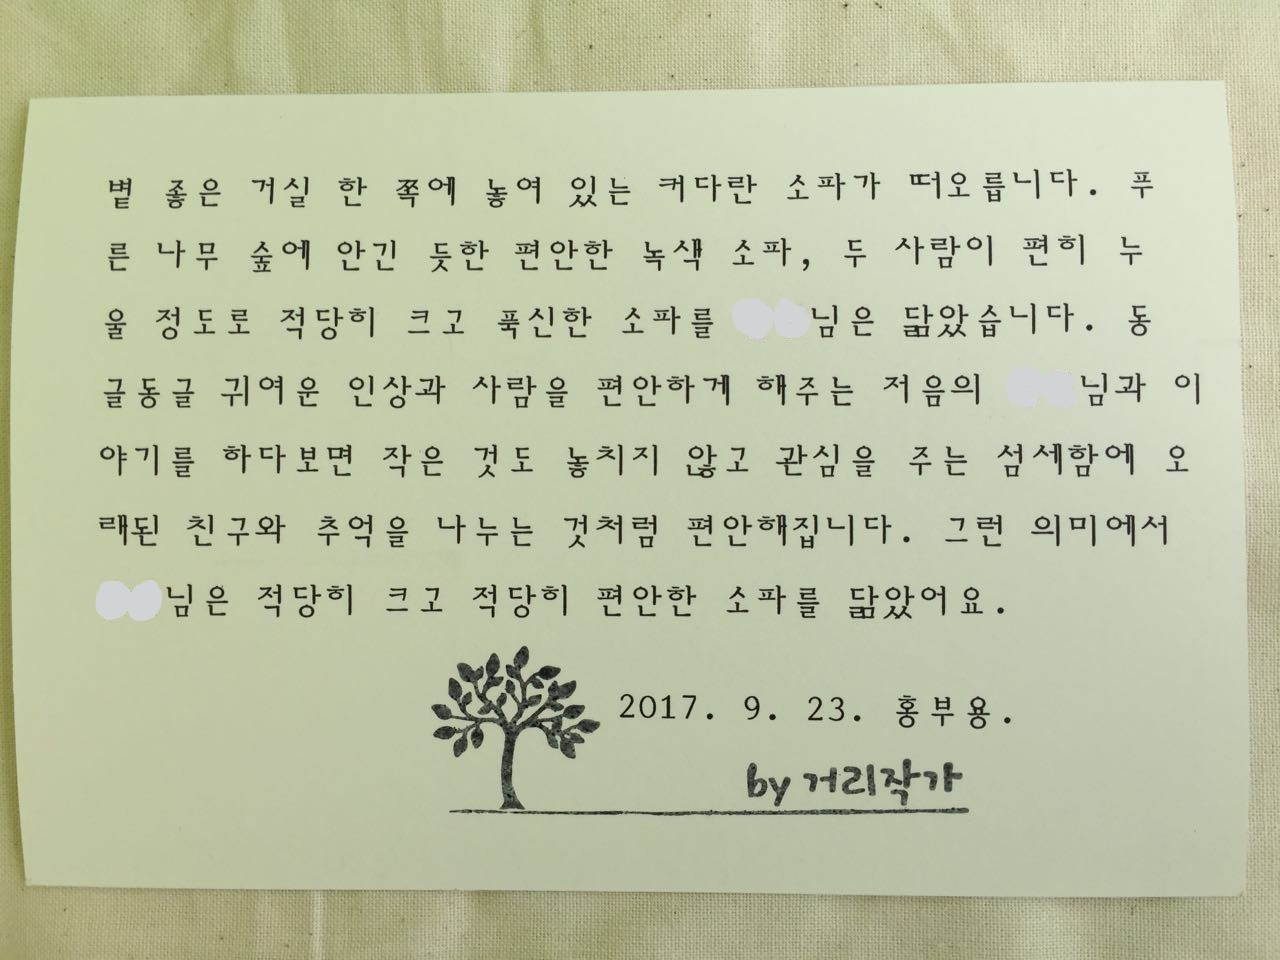 볕 좋은 거실 한 쪽에 놓여 있는 커다란 소파가 떠오릅니다. 푸
른 나무 숲에 안긴 듯한 편안한 녹색 소파, 두 사람이 편히 누
울 정도로 적당히 크고 푹신한 소파를 님은 닮았습니다. 동
글동글 귀여운 인상과 사람을 편안하게 해주는 저음의 님과 이
야기를 하다보면 작은 것도 놓치지 않고 관심을 주는 섬세함에 오
래된 친구와 추억을 나누는 것처럼 편안해집니다. 그런 의미에서
님은 적당히 크고 적당히 편안한 소파를 닮았어요.
2017. 9. 23. 홍부용.
by 거리작가